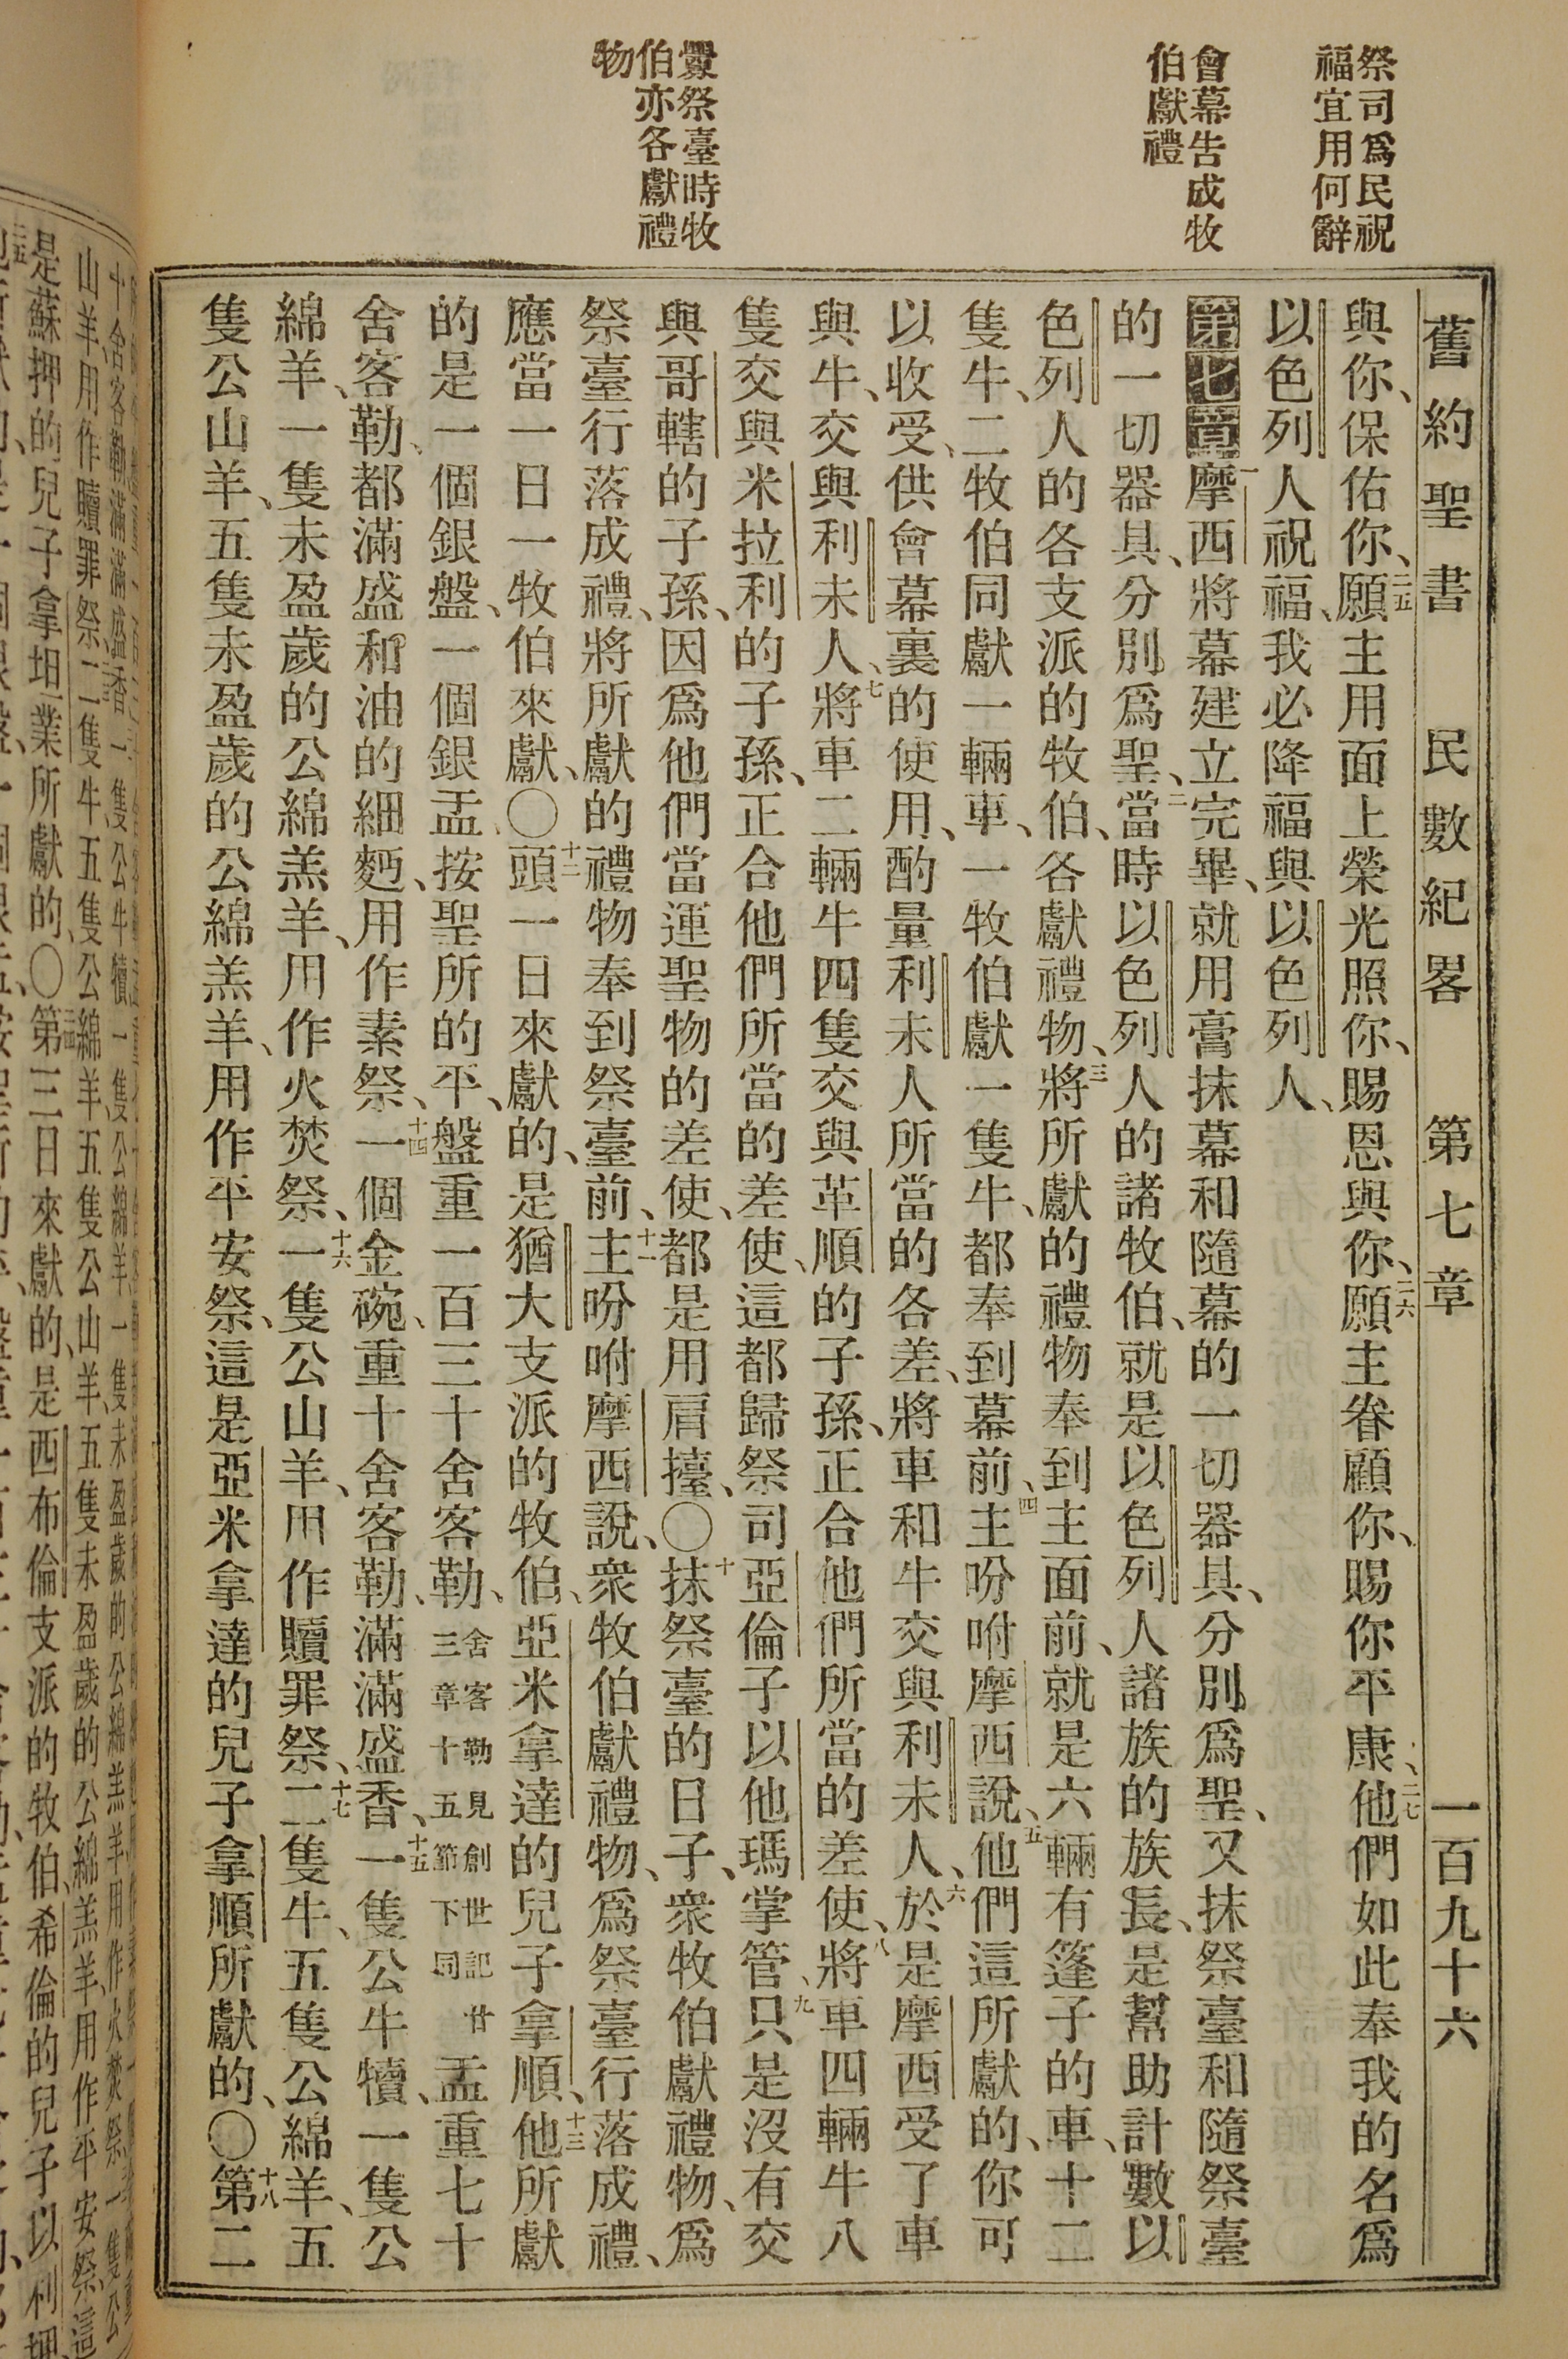 祭司爲民祝
福宜用何辭
會幕吿成牧
伯獻禮
釁祭臺時牧
伯亦各獻禮
物
舊約聖書 民數紀畧 第七章 一百九十六
與你、保佑你、二五願主用面上榮光照你、賜恩與你、二六願主眷顧你、賜你平康、二七他們如此奉我的名爲
以色列人祝福、我必降福與以色列人、
第七章一摩西將幕建立完畢、就用膏抹幕和隨幕的一切器具、分別爲聖、又抹祭臺和隨祭臺
的一切器具、分別爲聖、二當時以色列人的諸牧伯、就是以色列人諸族的族長、是幫助計數以
色列人的各支派的牧伯、各獻禮物、三將所獻的禮物奉到主面前、就是六輛有篷子的車、十二
隻牛、二牧伯同獻一輛車、一牧伯獻一隻牛、都奉到幕前、四主吩咐摩西說、五他們這所獻的、你可
以收受、供會幕裏的使用、酌量利未人所當的各差、將車和牛交與利未人、六於是摩西受了車
與牛、交與利未人、七將車二輛牛四隻交與革順的子孫、正合他們所當的差使、八將車四輛牛八
隻交與米拉利的子孫、正合他們所當的差使、這都歸祭司亞倫子以他瑪掌管、九只是沒有交
與哥轄的子孫、因爲他們當運聖物的差使、都是用肩擡、〇十抹祭臺的日子、衆牧伯獻禮物、爲
祭臺行落成禮、將所獻的禮物奉到祭臺前、十一主吩咐摩西說、衆牧伯獻禮物、爲祭臺行落成禮、
應當一日一牧伯來獻、〇十二頭一日來獻的、是猶大支派的牧伯、亞米拿達的兒子拿順、十三他所獻
的是一個銀盤、一個銀盂、按聖所的平、盤重一百三十舍客勒、舍客勒見創世記廿三章十五節下同盂重七十
舍客勒、都滿盛和油的細麪、用作素祭、十四一個金碗、重十舍客勒、滿滿盛香、十五一隻公牛犢、一隻公
綿羊、一隻未盈歲的公綿羔羊、用作火焚祭、十六一隻公山羊、用作贖罪祭、十七二隻牛、五隻公綿羊、五
隻公山羊、五隻未盈歲的公綿羔羊、用作平安祭、這是亞米拿達的兒子拿順所獻的、〇十八第二
山羊用作贖罪祭、二隻牛五隻公綿羊五隻公山羊、五隻未盈歲的公綿羔羊、用作平安祭、這
是蘇押的兒子拿坦業所獻的、〇第三日來獻的、是西布倫支派的牧伯、希倫的兒子以利押